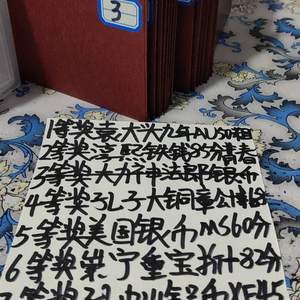 3
1等奖袁大头九年AU50粗
2等奖淳熙铁钱85分青春
3等奖大力神法郎银币
4等奖孔子大铜章公博68
5等奖美国银币MS60分
6等奖崇宁重宝折十82分